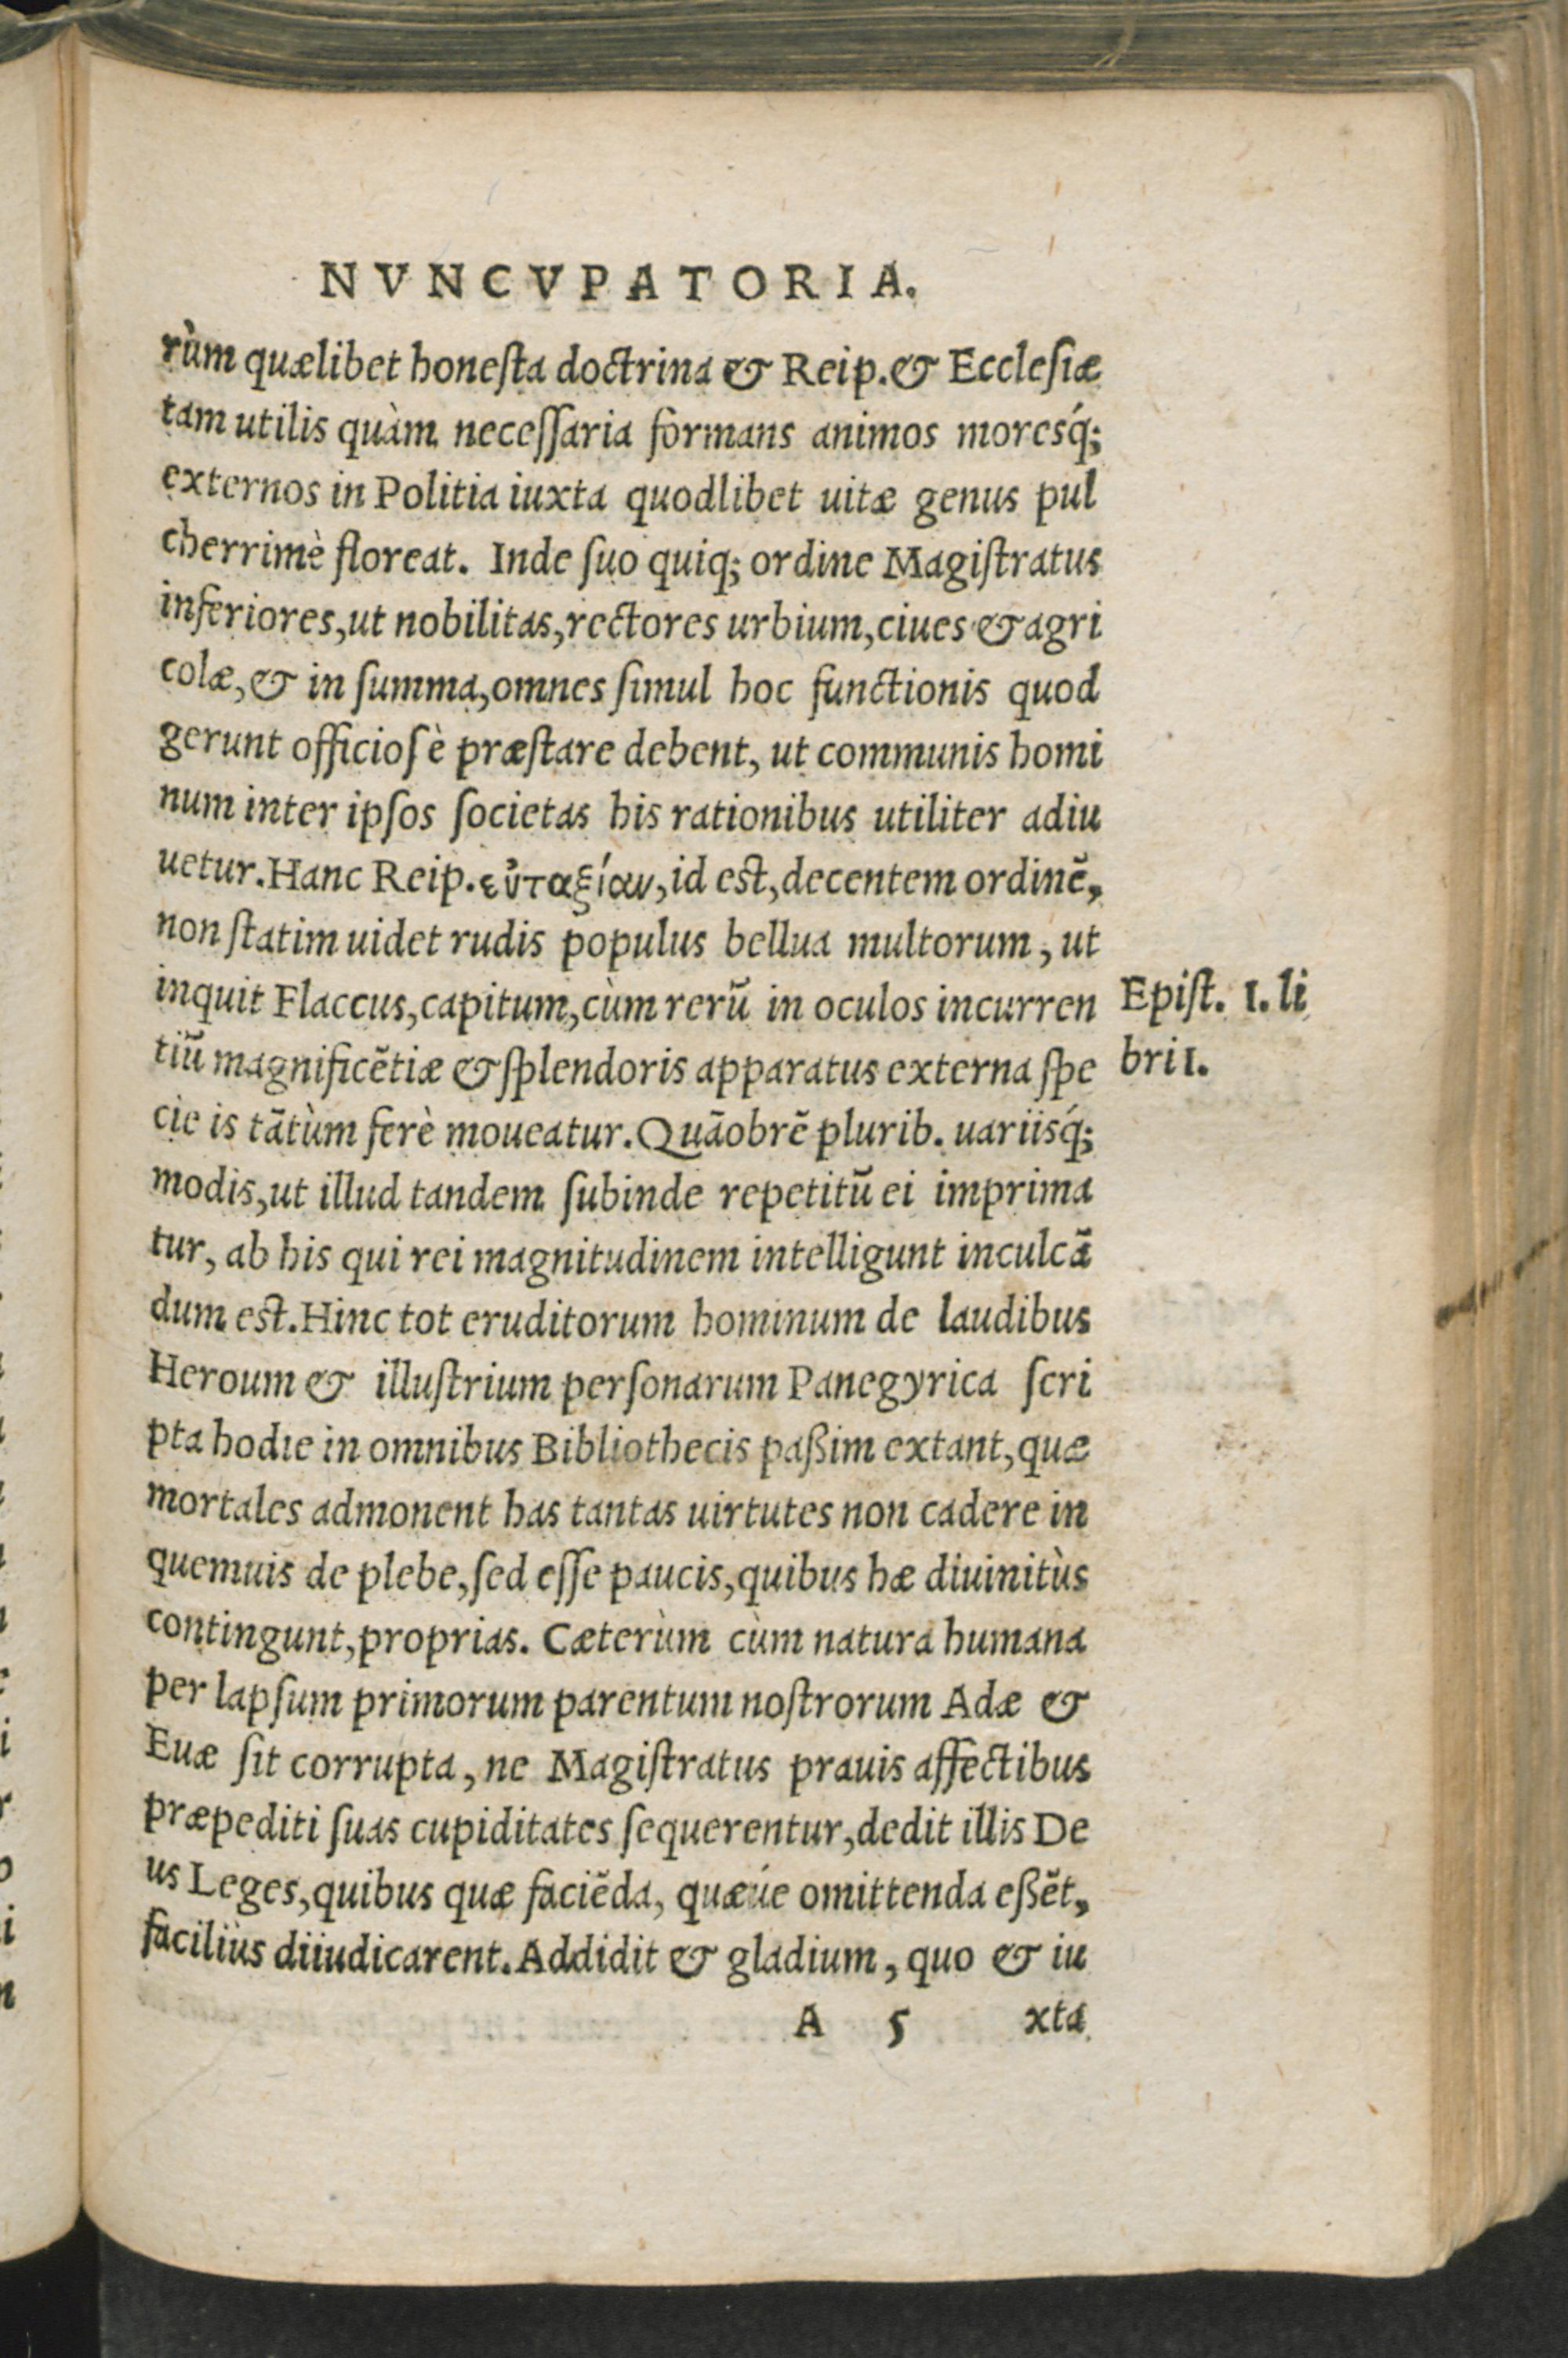 NVNCVPATORIA.
rùm quælibet honeſta doctrina & Reip. & Eccleſiæ
tam utilis quàm neceſſaria formans animos moresq́;
externos in Politia iuxta quodlibet uitæ genus pul
cherrimè floreat. Inde ſuo quiq; ordine Magiſtratus
inferiores, ut nobilitas, rectores urbium, ciues & agri
colæ, & in ſumma, omnes ſimul hoc functionis quod
gerunt officioſè præſtare debent, ut communis homi
num inter ipſos ſocietas his rationibus utiliter adiu
uetur. Hanc Reip. εὐταξίαν, id eſt, decentem ordinẽ,
non ſtatim uidet rudis populus bellua multorum, ut
inquit Flaccus, capitum, cùm rerũ in oculos incurren
Epiſt. I. li
tiũ magnificẽtiæ & ſplendoris apparatus externa ſpe
bri I.
cie is tãtùm ferè moueatur. Quãobrẽ plurib. uariisq́;
modis, ut illud tandem ſubinde repetitũ ei imprima
tur, ab his qui rei magnitudinem intelligunt inculcã
dum eſt. Hinc tot eruditorum hominum de laudibus
Heroum & illuſtrium perſonarum Panegyrica ſcri
pta hodie in omnibus Bibliothecis paßim extant, quæ
mortales admonent has tantas uirtutes non cadere in
quemuis de plebe, ſed eſſe paucis, quibus hæ diuinitùs
contingunt, proprias. Cæterùm cùm natura humana
per lapſum primorum parentum noſtrorum Adæ &
Euæ ſit corrupta, ne Magiſtratus prauis affectibus
præpediti ſuas cupiditates ſequerentur, dedit illis De
us Leges, quibus quæ faciẽda, quæúe omittenda eßẽt,
faciliùs diiudicarent. Addidit & gladium, quo & iu
A 5 xta